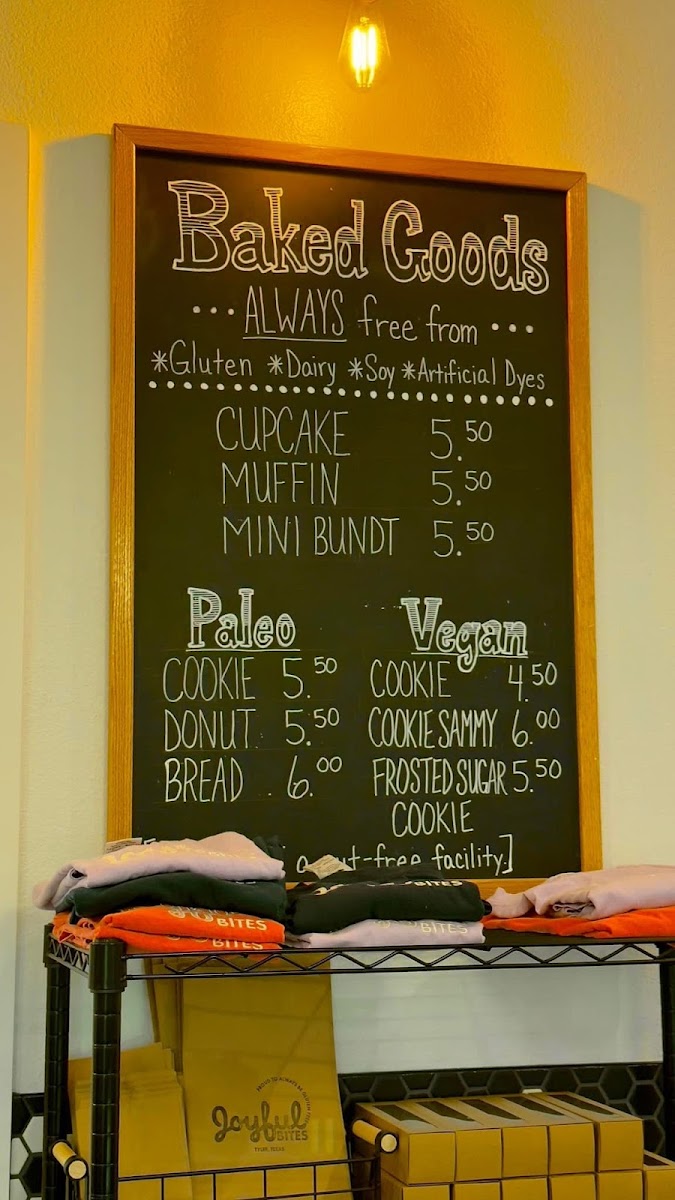 Baked Goods
... ALWAYS free from ...
*Gluten *Dairy *Soy *Artificial Dyes
CUPCAKE 5.50
MUFFIN 5.50
MINI BUNDT 5.50
Paleo
COOKIE 5.50
DONUT 5.50
BREAD 6.00
Vegan
COOKIE 4.50
COOKIE SAMMY 6.00
FROSTED SUGAR 5.50
COOKIE
facility]
BITES
BITES
BITES
BITES
Joyful
BITES
TYLER, TEXAS